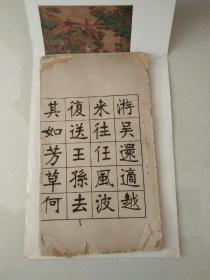 游吳還適越
来往任風波
復送王孫去
其如芳草何